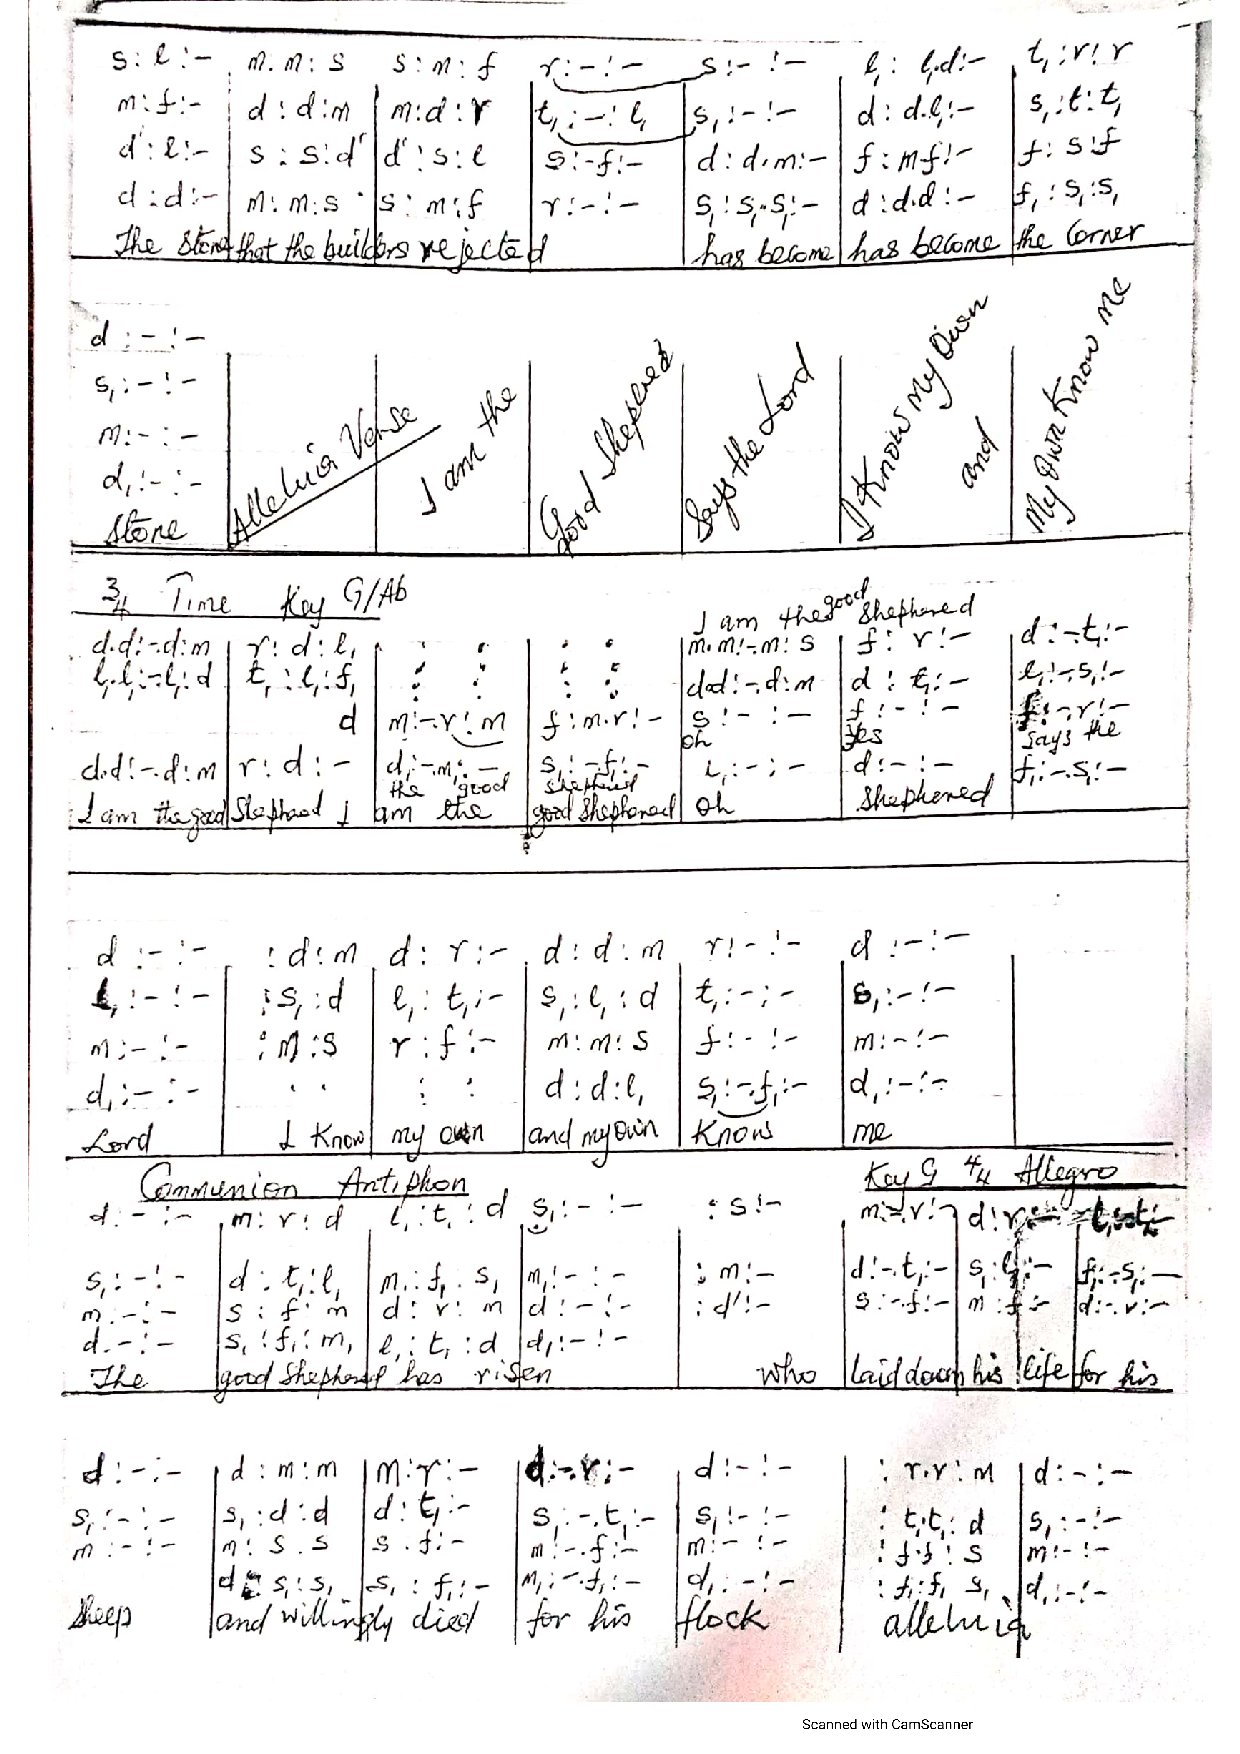 s : l : –   m . m : s   s : m : f   r : – : –   s : – : –   l₁ : l₁.d : –   t₁ : r : r
m : f : –   d : d : m   m : d : r   t₁ : – : l₁   s₁ : – : –   d : d.l₁ : –   s₁ : t₁ : t₁
d' : l : –   s : s : d'   d' : s : l   s : –f : –   d : d.m : –   f : m.f : –   f : s : f
d : d : –   m : m : s   s : m : f   r : – : –   s₁ : s₁.s₁ : –   d : d.d : –   f₁ : s₁ : s₁
The Stone that the builders rejected has become has become the Corner
d : – : –
s₁ : – : –
m : – : –
d₁ : – : –
Stone
Alleluia Verse
I am the
Good Shepherd
Says the Lord
I Know My Own and
My Own Know Me
3/4 Time Key G/Ab
I am the good Shephered
d.d : –.d : m   r : d : l₁   m.m : –.m : s   f : r : –   d : –.t₁ : –
l₁.l₁ : –.l₁ : d   t₁ : l₁ : f₁   d.d : –.d : m   d : t₁ : –   l₁ : –.s₁ : –
d   m : –.r : m   f : m.r : –   s : – : –   f : – : –   f : –.r : –
oh Yes Says the
d.d : –.d : m   r : d : –   d₁ : –.m₁ : –   s₁ : –.f₁ : –   l₁ : – : –   d : – : –   f₁ : –.s₁ : –
the good Shepherd
I am the good Shepherd I am the good Shephered oh Shephered
d : – : –   : d : m   d : r : –   d : d : m   r : – : –   d : – : –
l₁ : – : –   : s₁ : d   l₁ : t₁ : –   s₁ : l₁ : d   t₁ : – : –   s₁ : – : –
m : – : –   : m : s   r : f : –   m : m : s   f : – : –   m : – : –
d₁ : – : –   d : d : l₁   s₁ : –.f₁ : –   d₁ : – : –
Lord I Know my own and my own Knows me
Communion Antiphon Key G 4/4 Allegro
d : – : –   m : r : d   l₁ : t₁ : d   s₁ : – : –   : s : –   m : –.r : –   d : r : –
s₁ : – : –   d : t₁ : l₁   m₁ : f₁ : s₁   m₁ : – : –   : m : –   d : –.t₁ : –   s₁ : l₁ : –   f₁ : –.s₁ : –
m : – : –   s : f : m   d : r : m   d : – : –   : d' : –   s : –.f : –   m : f : –   d : –.r : –
d : – : –   s₁ : f₁ : m₁   l₁ : t₁ : d   d₁ : – : –
The good Shepherd has risen who laid down his life for his
d : – : –   d : m : m   m : r : –   d : –.r : –   d : – : –   : r.r : m   d : – : –
s₁ : – : –   s₁ : d : d   d : t₁ : –   s₁ : –.t₁ : –   s₁ : – : –   : t₁.t₁ : d   s₁ : – : –
m : – : –   m : s : s   s : f : –   m : –.f : –   m : – : –   : f.f : s   m : – : –
d : s₁ : s₁   s₁ : f₁ : –   m₁ : –.f₁ : –   d₁ : – : –   : f₁.f₁ : s₁   d₁ : – : –
Sheep and willingly died for his flock alleluia
Scanned with CamScanner